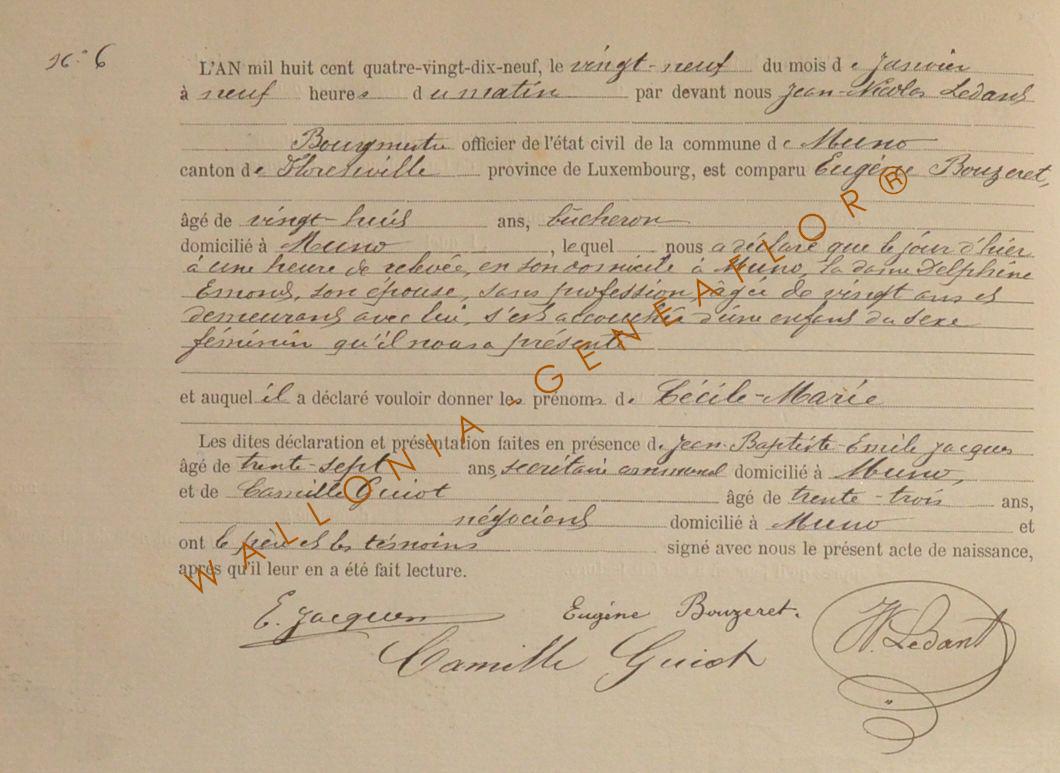 N° 6
L'AN mil huit cent quatre-vingt-dix-neuf, le vingt-neuf du mois de Janvier
à neuf heures du matin par devant nous Jean-Nicolas Ledant
Bourgmestre officier de l'état civil de la commune de Muno
canton de Florenville province de Luxembourg, est comparu Eugène Bouzeret,
âgé de vingt-huit ans, bûcheron
domicilié à Muno, lequel nous a déclaré que le jour d'hier
à une heure de relevée, en son domicile à Muno, la dame Delphine
Emond, son épouse, sans profession, âgée de vingt ans et
demeurant avec lui, s'est accouchée d'une enfant du sexe
féminin qu'il nous a présenté
et auquel il a déclaré vouloir donner les prénoms de Cécile-Marie
Les dites déclaration et présentation faites en présence de Jean-Baptiste Emile Jacques
âgé de trente-sept ans, secrétaire communal domicilié à Muno,
et de Camille Guiot âgé de trente-trois ans,
négociant domicilié à Muno et
ont le père et les témoins signé avec nous le présent acte de naissance,
après qu'il leur en a été fait lecture.
E. Jacques Eugène Bouzeret. N. Ledant
Camille Guiot
WALLONIA - GENEAFLOR®